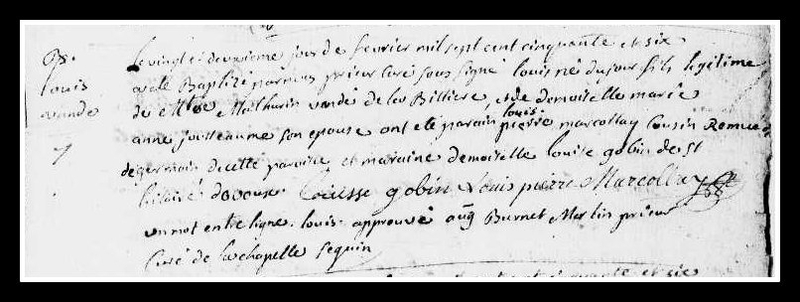 Bp.
Louis
vandé
7
Le vingt et deuxieme jour de fevrier mil sept cent cinquante et six
a eté Baptizé par nous prieur Curé sous signé Louis né du jour fils legitime
de Mtre Mathurin vandé de la Billiere, et de demoiselle marie
anne jousseaume son epouse ont eté parain louis pierre marcollay Cousin Remué de
de germain de cette paroisse et maraine demoiselle louise gobin de St
hilaire de voux. Louisse gobin Louis pierre Marcollay
un mot entre ligne. louis. approuvé aug Burnet Martin prieur
Curé de la chapelle Seguin